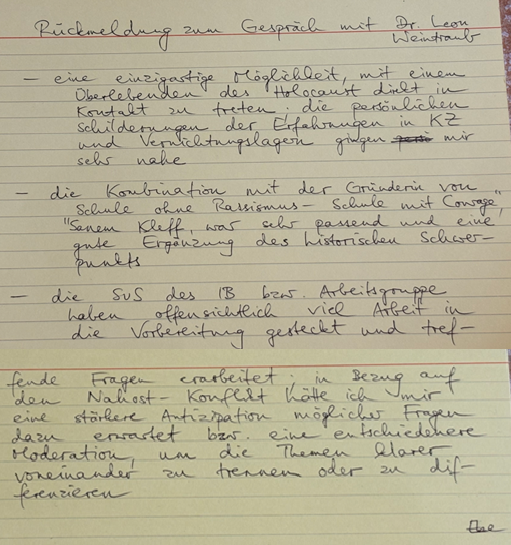 Rückmeldung zum Gespräch mit Dr. Leon
Weintraub
– eine einzigartige Möglichkeit, mit einem
Überlebenden des Holocaust direkt in
Kontakt zu treten; die persönlichen
Schilderungen der Erfahrungen in KZ
und Vernichtungslagern gingen mir
sehr nahe
– die Kombination mit der Gründerin von
"Schule ohne Rassismus – Schule mit Courage",
Sanem Kleff, war sehr passend und eine
gute Ergänzung des historischen Schwer-
punkts
– die SuS des IB bzw. Arbeitsgruppe
haben offensichtlich viel Arbeit in
die Vorbereitung gesteckt und tref-
fende Fragen erarbeitet; in Bezug auf
den Nahost-Konflikt hätte ich mir
eine stärkere Antizipation möglicher Fragen
dazu erwartet bzw. eine entschiedenere
Moderation, um die Themen klarer
voneinander zu trennen oder zu dif-
ferenzieren